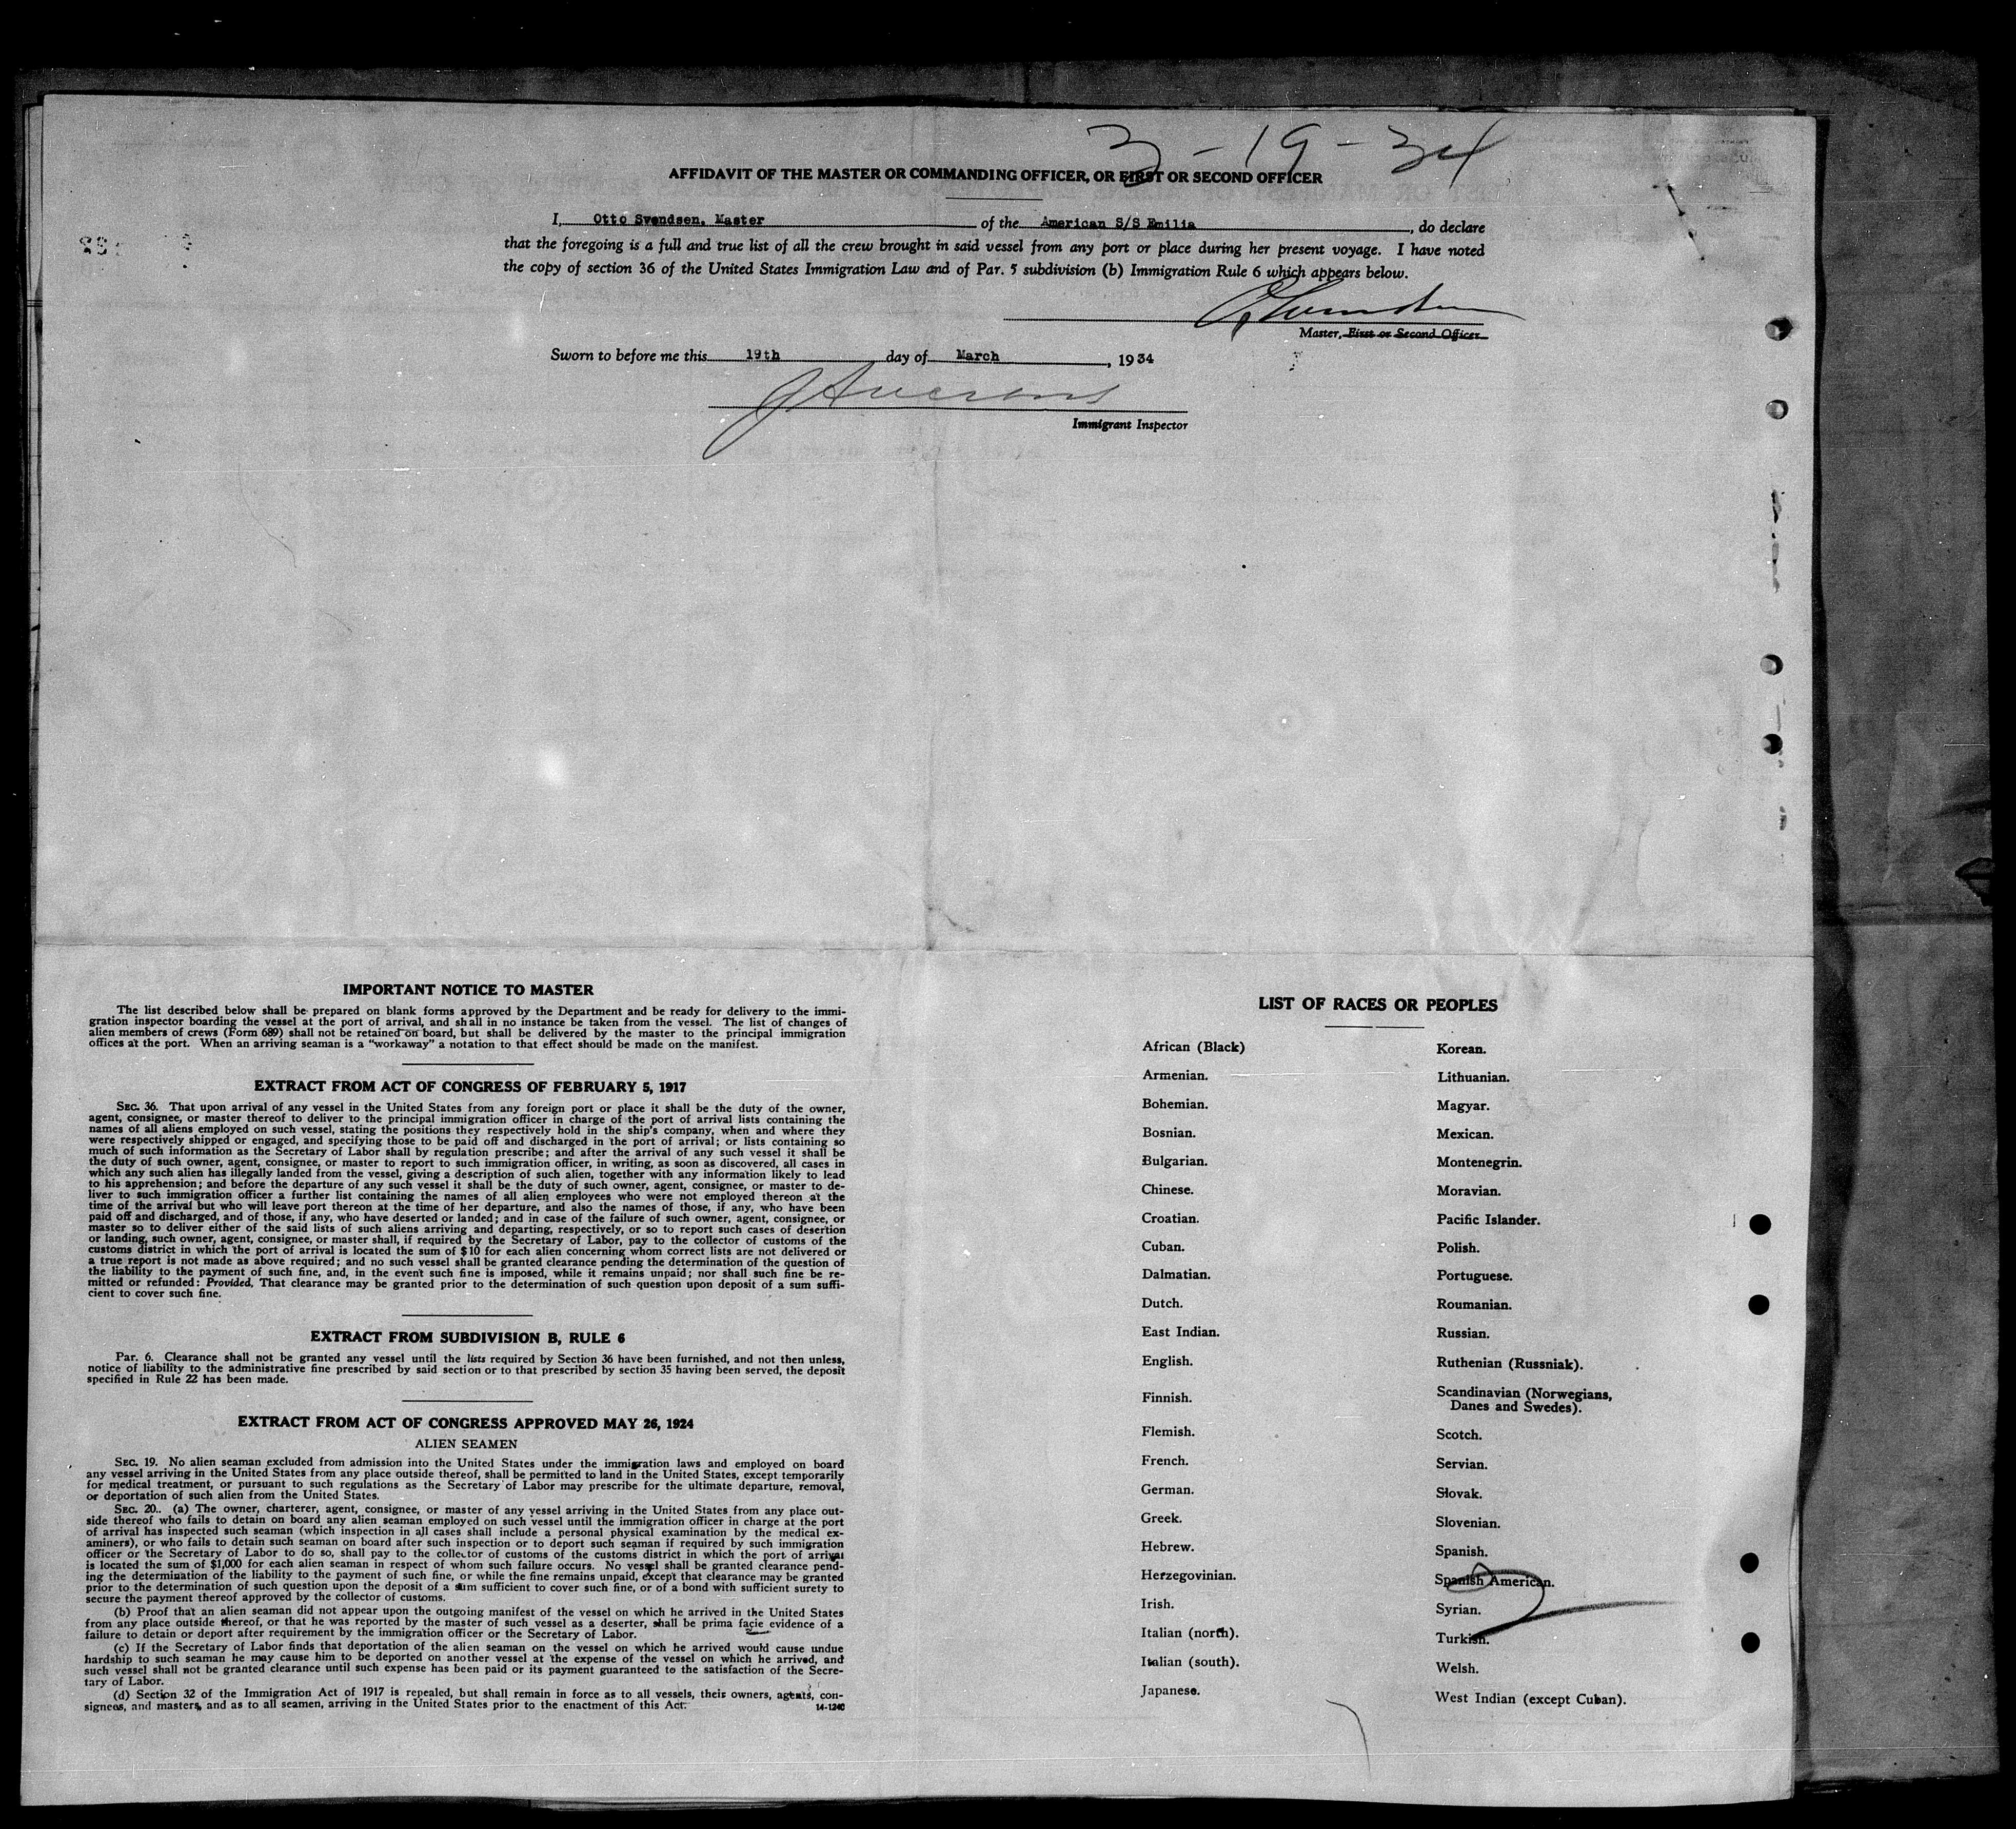 3-19-34
AFFIDAVIT OF THE MASTER OR COMMANDING OFFICER, OR FIRST OR SECOND OFFICER
I, Otto Svendsen, Master of the American S/S Emilia, do declare
that the foregoing is a full and true list of all the crew brought in said vessel from any port or place during her present voyage. I have noted
the copy of section 36 of the United States Immigration Law and of Par. 5 subdivision (b) Immigration Rule 6 which appears below.
Master, First or Second Officer
Sworn to before me this 19th day of March, 1934
Immigrant Inspector
IMPORTANT NOTICE TO MASTER
The list described below shall be prepared on blank forms approved by the Department and be ready for delivery to the immi-
gration inspector boarding the vessel at the port of arrival, and shall in no instance be taken from the vessel. The list of changes of
alien members of crews (Form 689) shall not be retained on board, but shall be delivered by the master to the principal immigration
offices at the port. When an arriving seaman is a "workaway" a notation to that effect should be made on the manifest.
EXTRACT FROM ACT OF CONGRESS OF FEBRUARY 5, 1917
SEC. 36. That upon arrival of any vessel in the United States from any foreign port or place it shall be the duty of the owner,
agent, consignee, or master thereof to deliver to the principal immigration officer in charge of the port of arrival lists containing the
names of all aliens employed on such vessel, stating the positions they respectively hold in the ship's company, when and where they
were respectively shipped or engaged, and specifying those to be paid off and discharged in the port of arrival; or lists containing so
much of such information as the Secretary of Labor shall by regulation prescribe; and after the arrival of any such vessel it shall be
the duty of such owner, agent, consignee, or master to report to such immigration officer, in writing, as soon as discovered, all cases in
which any such alien has illegally landed from the vessel, giving a description of such alien, together with any information likely to lead
to his apprehension; and before the departure of any such vessel it shall be the duty of such owner, agent, consignee, or master to de-
liver to such immigration officer a further list containing the names of all alien employees who were not employed thereon at the
time of the arrival but who will leave port thereon at the time of her departure, and also the names of those, if any, who have been
paid off and discharged, and of those, if any, who have deserted or landed; and in case of the failure of such owner, agent, consignee, or
master so to deliver either of the said lists of such aliens arriving and departing, respectively, or so to report such cases of desertion
or landing, such owner, agent, consignee, or master shall, if required by the Secretary of Labor, pay to the collector of customs of the
customs district in which the port of arrival is located the sum of $10 for each alien concerning whom correct lists are not delivered or
a true report is not made as above required; and no such vessel shall be granted clearance pending the determination of the question of
the liability to the payment of such fine, and, in the event such fine is imposed, while it remains unpaid; nor shall such fine be re-
mitted or refunded: Provided, That clearance may be granted prior to the determination of such question upon deposit of a sum suffi-
cient to cover such fine.
EXTRACT FROM SUBDIVISION B, RULE 6
Par. 6. Clearance shall not be granted any vessel until the lists required by Section 36 have been furnished, and not then unless,
notice of liability to the administrative fine prescribed by said section or to that prescribed by section 35 having been served, the deposit
specified in Rule 22 has been made.
EXTRACT FROM ACT OF CONGRESS APPROVED MAY 26, 1924
ALIEN SEAMEN
SEC. 19. No alien seaman excluded from admission into the United States under the immigration laws and employed on board
any vessel arriving in the United States from any place outside thereof, shall be permitted to land in the United States, except temporarily
for medical treatment, or pursuant to such regulations as the Secretary of Labor may prescribe for the ultimate departure, removal,
or deportation of such alien from the United States.
SEC. 20.. (a) The owner, charterer, agent, consignee, or master of any vessel arriving in the United States from any place out-
side thereof who fails to detain on board any alien seaman employed on such vessel until the immigration officer in charge at the port
of arrival has inspected such seaman (which inspection in all cases shall include a personal physical examination by the medical ex-
aminers), or who fails to detain such seaman on board after such inspection or to deport such seaman if required by such immigration
officer or the Secretary of Labor to do so, shall pay to the collector of customs of the customs district in which the port of arrival
is located the sum of $1,000 for each alien seaman in respect of whom such failure occurs. No vessel shall be granted clearance pend-
ing the determination of the liability to the payment of such fine, or while the fine remains unpaid, except that clearance may be granted
prior to the determination of such question upon the deposit of a sum sufficient to cover such fine, or of a bond with sufficient surety to
secure the payment thereof approved by the collector of customs.
(b) Proof that an alien seaman did not appear upon the outgoing manifest of the vessel on which he arrived in the United States
from any place outside thereof, or that he was reported by the master of such vessel as a deserter, shall be prima facie evidence of a
failure to detain or deport after requirement by the immigration officer or the Secretary of Labor.
(c) If the Secretary of Labor finds that deportation of the alien seaman on the vessel on which he arrived would cause undue
hardship to such seaman he may cause him to be deported on another vessel at the expense of the vessel on which he arrived, and
such vessel shall not be granted clearance until such expense has been paid or its payment guaranteed to the satisfaction of the Secre-
tary of Labor.
(d) Section 32 of the Immigration Act of 1917 is repealed, but shall remain in force as to all vessels, their owners, agents, con-
signees, and masters, and as to all seamen, arriving in the United States prior to the enactment of this Act.
14-1240
LIST OF RACES OR PEOPLES
African (Black)
Armenian.
Bohemian.
Bosnian.
Bulgarian.
Chinese.
Croatian.
Cuban.
Dalmatian.
Dutch.
East Indian.
English.
Finnish.
Flemish.
French.
German.
Greek.
Hebrew.
Herzegovinian.
Irish.
Italian (north).
Italian (south).
Japanese.
Korean.
Lithuanian.
Magyar.
Mexican.
Montenegrin.
Moravian.
Pacific Islander.
Polish.
Portuguese.
Roumanian.
Russian.
Ruthenian (Russniak).
Scandinavian (Norwegians,
Danes and Swedes).
Scotch.
Servian.
Slovak.
Slovenian.
Spanish.
Spanish American.
Syrian.
Turkish.
Welsh.
West Indian (except Cuban).